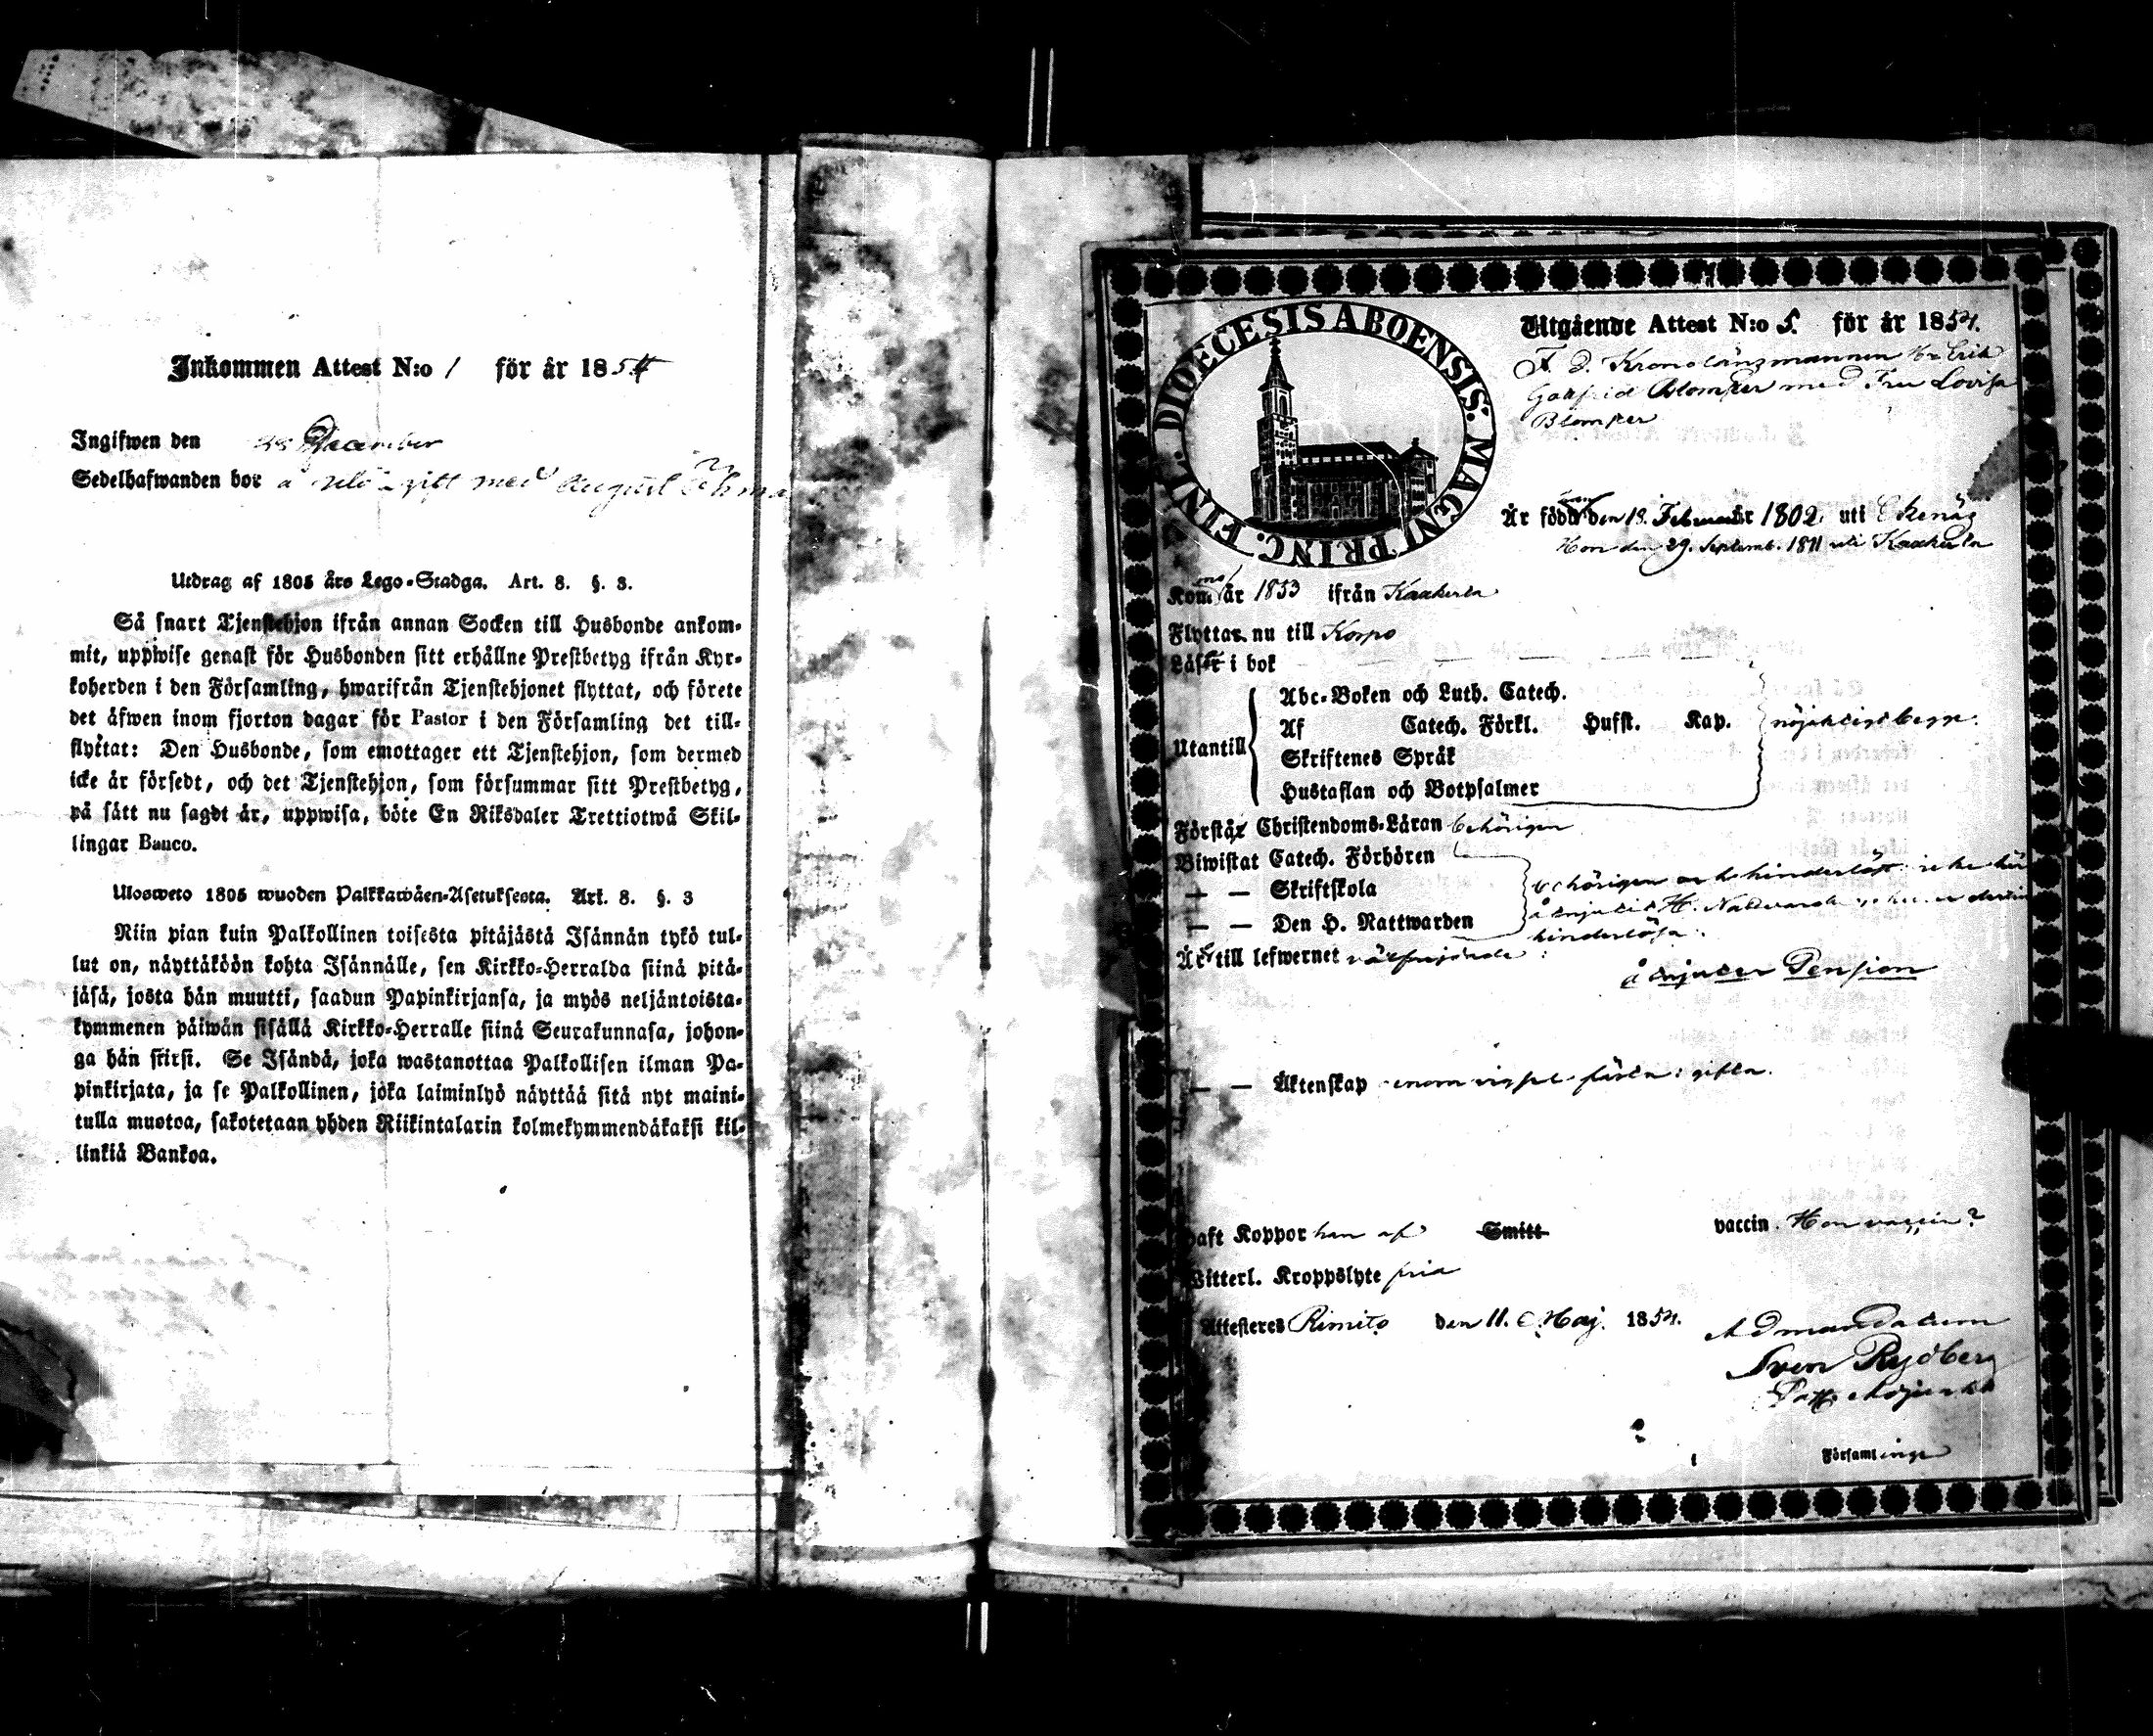 Inkommen Attest N:o 1 för år 1854
Ingifwen den December
Sedelhafwanden bor å gift med August Öhma
Utdrag af 1805 års Lego-Stadga. Art. 8. §. 3.
Så snart Tjenstehjon ifrån annan Socken till Husbonde ankom-
mit, uppwise genast för Husbonden sitt erhållne Prestbetyg ifrån Kyr-
koherden i den Församling, hwarifrån Tjenstehjonet flyttat, och förete
det äfwen inom fjorton dagar för Pastor i den Församling det till-
flyttat: Den Husbonde, som emottager ett Tjenstehjon, som dermed
icke är försedt, och det Tjenstehjon, som försummar sitt Prestbetyg,
på sätt nu sagdt är, uppwisa, böte En Riksdaler Trettiotwå Skil-
lingar Banco.
Ulosweto 1805 wuoden Palkkawäen-Asetuksesta. Art. 8. §. 3
Niin pian kuin Palkollinen toisesta pitäjästä Isännän tykö tul-
lut on, näyttäköön kohta Isännälle, sen Kirkko-Herralda siinä pitä-
jäsä, josta hän muutti, saadun Papinkirjansa, ja myös neljäntoista-
kymmenen päiwän sisällä Kirkko-Herralle siinä Seurakunnasa, johon-
ga hän siirsi. Se Isändä, joka wastanottaa Palkollisen ilman Pa-
pinkirjata, ja se Palkollinen, joka laiminlyö näyttää sitä nyt maini-
tulla muotoa, sakotetaan yhden Riikintalarin kolmekymmendäkaksi kil-
linkiä Bankoa.
DIOECESIS ABOENSIS. MAGNI PRINC. FINL.
Utgående Attest N:o 5. för år 1854.
F. D. Kronolänsmannen Hr Erik
Gottfrid Blomker med Fru Lovisa
Blomker
Är född den 18. Februari år 1802 uti Ekenäs
Hon den 29. Septemb. 1811 uti Kaakerla
Kom år 1853 ifrån Kaakerla
Flyttar nu till Korpo
Läser i bok
Utantill
Abc-Boken och Luth. Catech.
Af Catech. Förkl. Husst. Kap.
Skriftenes Språk
Hustaflan och Botpsalmer
Förstår Christendoms-Läran behörigen
Biwistat Catech. Förhören
— — Skriftskola
— — Den H. Nattwarden
behörigen
hinderlösa.
Är till lefwernet välfrejdade
åtnjuter Pension
— — Äktenskap genom vigsel första: gifta.
Haft Koppor han af Smitt vaccin. Hon vaccin?
Witterl. Kroppslyte fria
Attesteres Rimito den 11. Maj. 1854.
Ad mandatum
Sven Rydberg
Församlinge